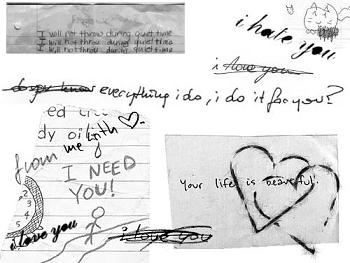 I will not throw during quiet time
I will not throw during quiet time
I will not throw during quiet time
i hate you
i love you
do you know everything i do, i do it for you?
ed
dy
with
from me
I NEED
YOU!
2
3
4
5
i love you
Your life is beautiful.
i love you